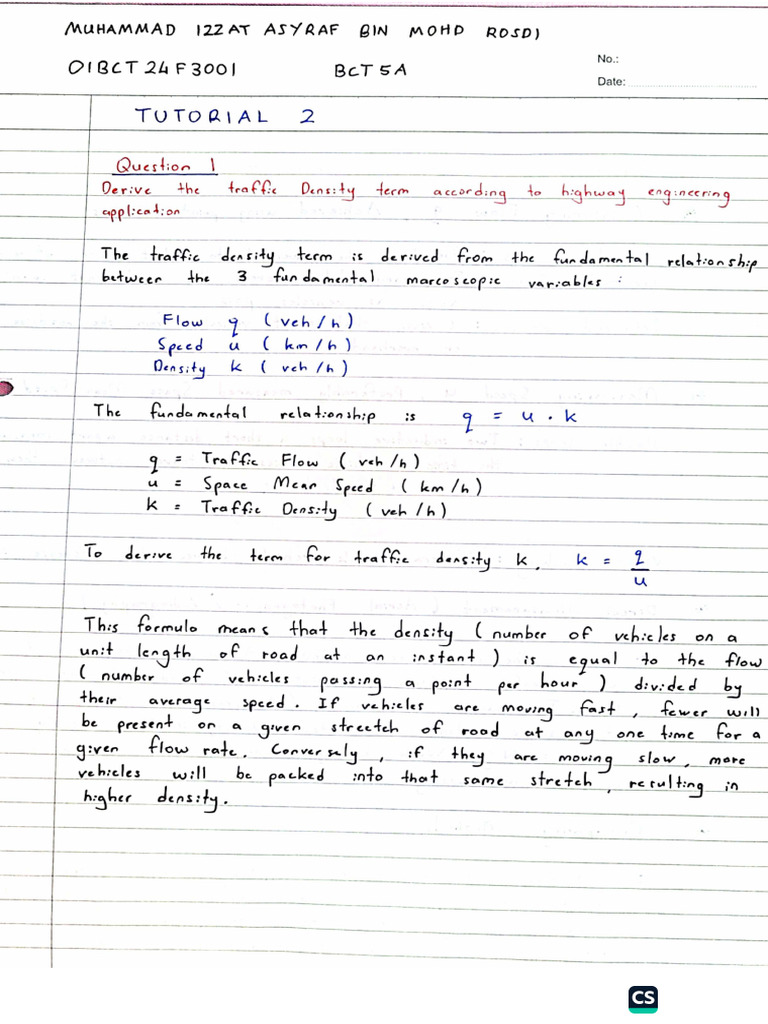 MUHAMMAD IZZAT ASYRAF BIN MOHD ROSDI
01BCT24F3001 BCT 5A
No.:
Date:
TUTORIAL 2
Question 1
Derive the traffic Density term according to highway engineering
application
The traffic density term is derived from the fundamental relationship
between the 3 fundamental marcoscopic variables :
Flow q (veh/h)
Speed u (km/h)
Density k (veh/h)
The fundamental relationship is q = u . k
q = Traffic Flow (veh/h)
u = Space Mean Speed (km/h)
k = Traffic Density (veh/h)
To derive the term for traffic density k, k = q
u
This formula means that the density (number of vehicles on a
unit length of road at an instant) is equal to the flow
(number of vehicles passing a point per hour) divided by
their average speed. If vehicles are moving fast, fewer will
be present on a given streetch of road at any one time for a
given flow rate. Conversely, if they are moving slow, more
vehicles will be packed into that same stretch, resulting in
higher density.
CS